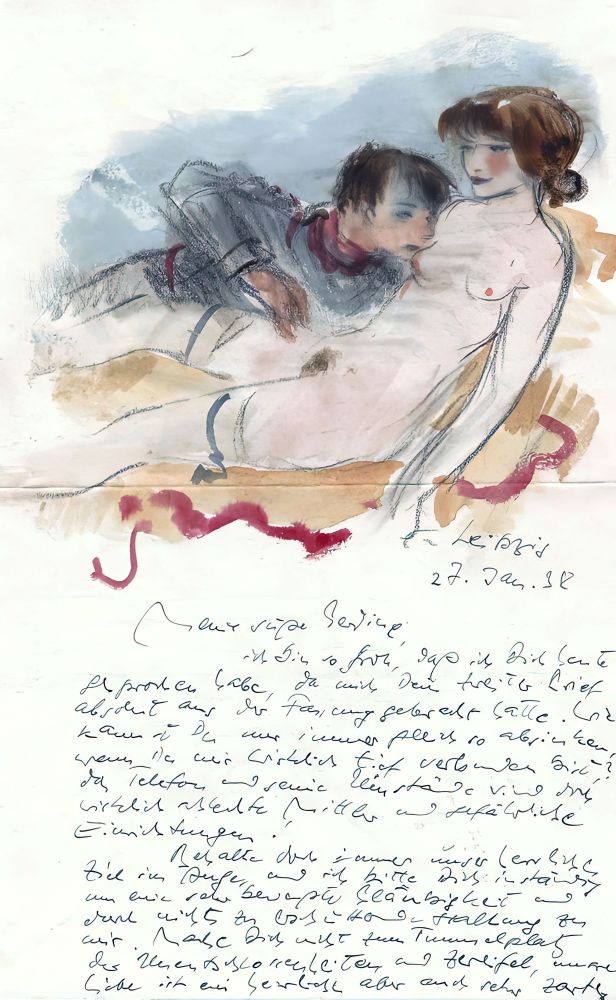 Leipzig
27. Jan. 38
Meine süße
ich bin so froh, daß ich Dich heute
gesprochen habe, da mich Dein zweiter Brief
absolut aus der Fassung gebracht hatte. Wie
kannst Du nur immer gleich so absinken
wenn Du mir wirklich tief verbunden bist!
das Telefon und seine Umstände sind doch
wirklich schlechte Mittler und gefährliche
Einrichtungen!
Behalte doch immer unser herrliches
Ziel im Auge, und ich bitte Dich inständig
um eine sehr bewußte Gläubigkeit und
durch nichts zu erschütternde Haltung zu
mir. Mache Dich nicht zum Tummelplatz
der Unentschlossenheiten und Zweifel, unsere
Liebe ist ein herrliche aber auch sehr zarte